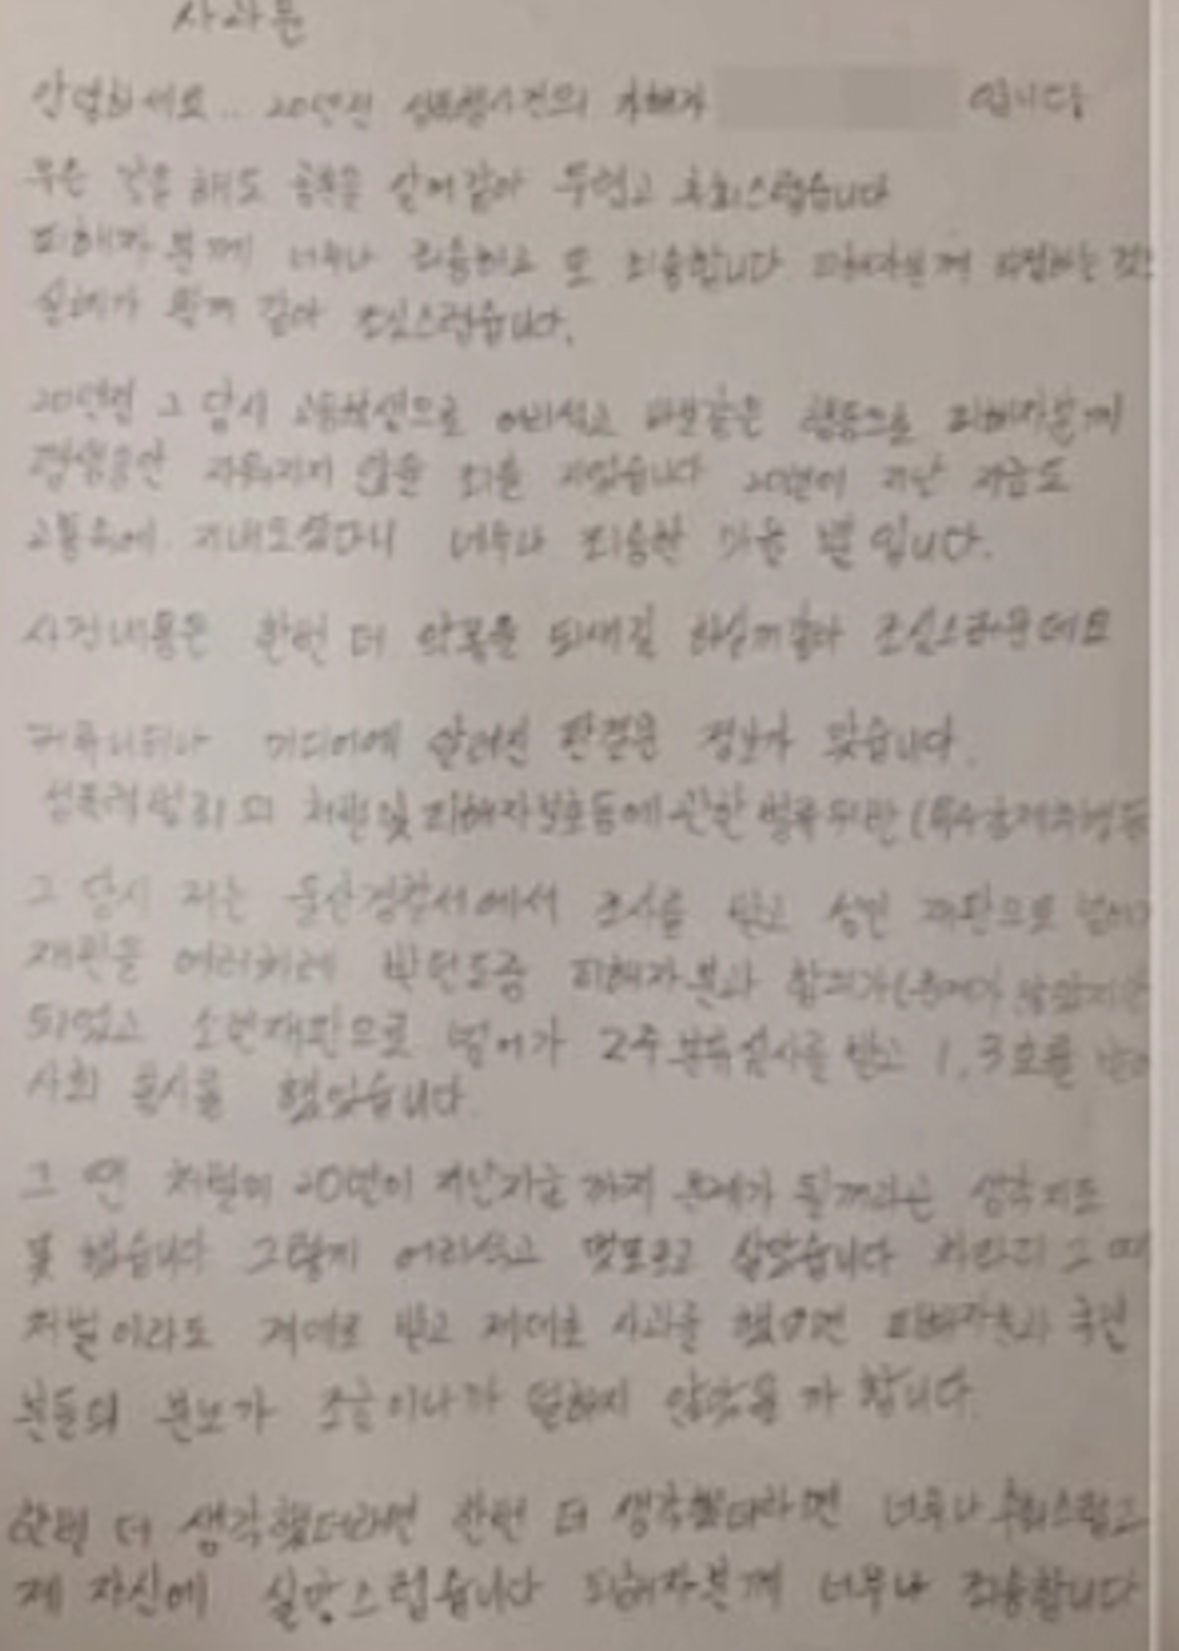 사과문
안녕하세요.. 20년전 성폭행사건의 가해자 입니다
무슨 말을 해도 공분을 살거같아 두렵고 후회스럽습니다
피해자분께 너무나 죄송하고 또 죄송합니다 피해자분께
실례가 될까 같아 조심스럽습니다.
20년전 그 당시 고등학생으로 어리석고 행동으로 피해자분께
평생동안 지워지지 않을 죄를 지었습니다 20년이 지난 지금도
고통속에 지내오셨다니 너무나 죄송한 마음 뿐 입니다.
사건내용은 한번 더 악몽을 되새길 조심스러운데요
커뮤니티나 미디어에 알려진 판결문 정보가 맞습니다.
성폭력범죄의 처벌및 피해자보호등에관한 법률위반 (특수강제추행등
그 당시 저는 울산경찰서에서 조사를 받고 성인 재판으로
재판을 여러차례 받던도중 피해자분과 합의가
되었고 소년재판으로 넘어가 2주분류심사를 받고 1,3호를
사회 봉사를 했었습니다
그 땐 처벌이 20년이 지난지금 까지 문제가 될꺼라곤 생각지도
못 했습니다 그렇게 어리석고 멋모르고 살았습니다 차라리 그 때
처벌이라도 제대로 받고 제대로 사과를 했으면 피해자분과 국민
분들의 분노가 조금이나마 덜하지 않았을 까 합니다.
한번 더 생각했더라면 한번 더 생각했더라면 너무나 후회스럽고
제 자신에 실망스럽습니다 피해자분께 너무나 죄송합니다